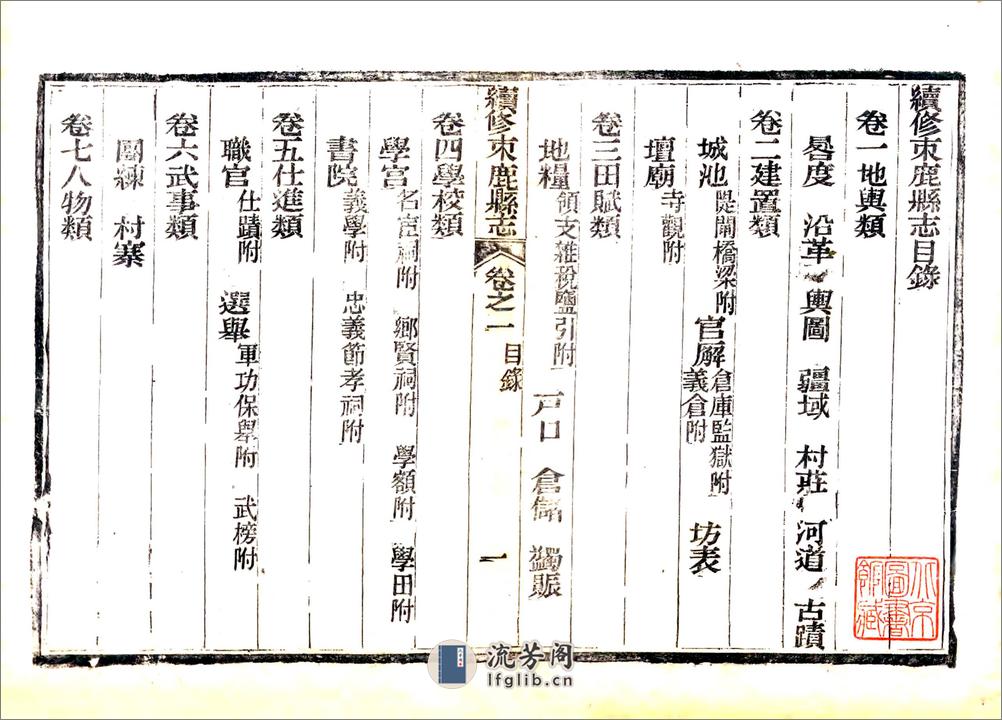 續修束鹿縣志目錄
卷一地輿類
晷度 沿革 輿圖 疆域 村莊 河道 古蹟
卷二建置類
城池 堤閘橋梁附 官廨 倉庫監獄附 義倉附 坊表
壇廟 寺觀附
卷三田賦類
地糧 領支雜稅鹽引附 戶口 倉儲 蠲賑
續修束鹿縣志 卷之一 目錄 一
卷四學校類
學宮 名宦祠附 鄉賢祠附 學額附 學田附
書院 義學附 忠義節孝祠附
卷五仕進類
職官 仕蹟附 選舉 軍功保舉附 武榜附
卷六武事類
團練 村寨
卷七人物類
北京
圖書
館藏
流芳阁
lfglib.cn